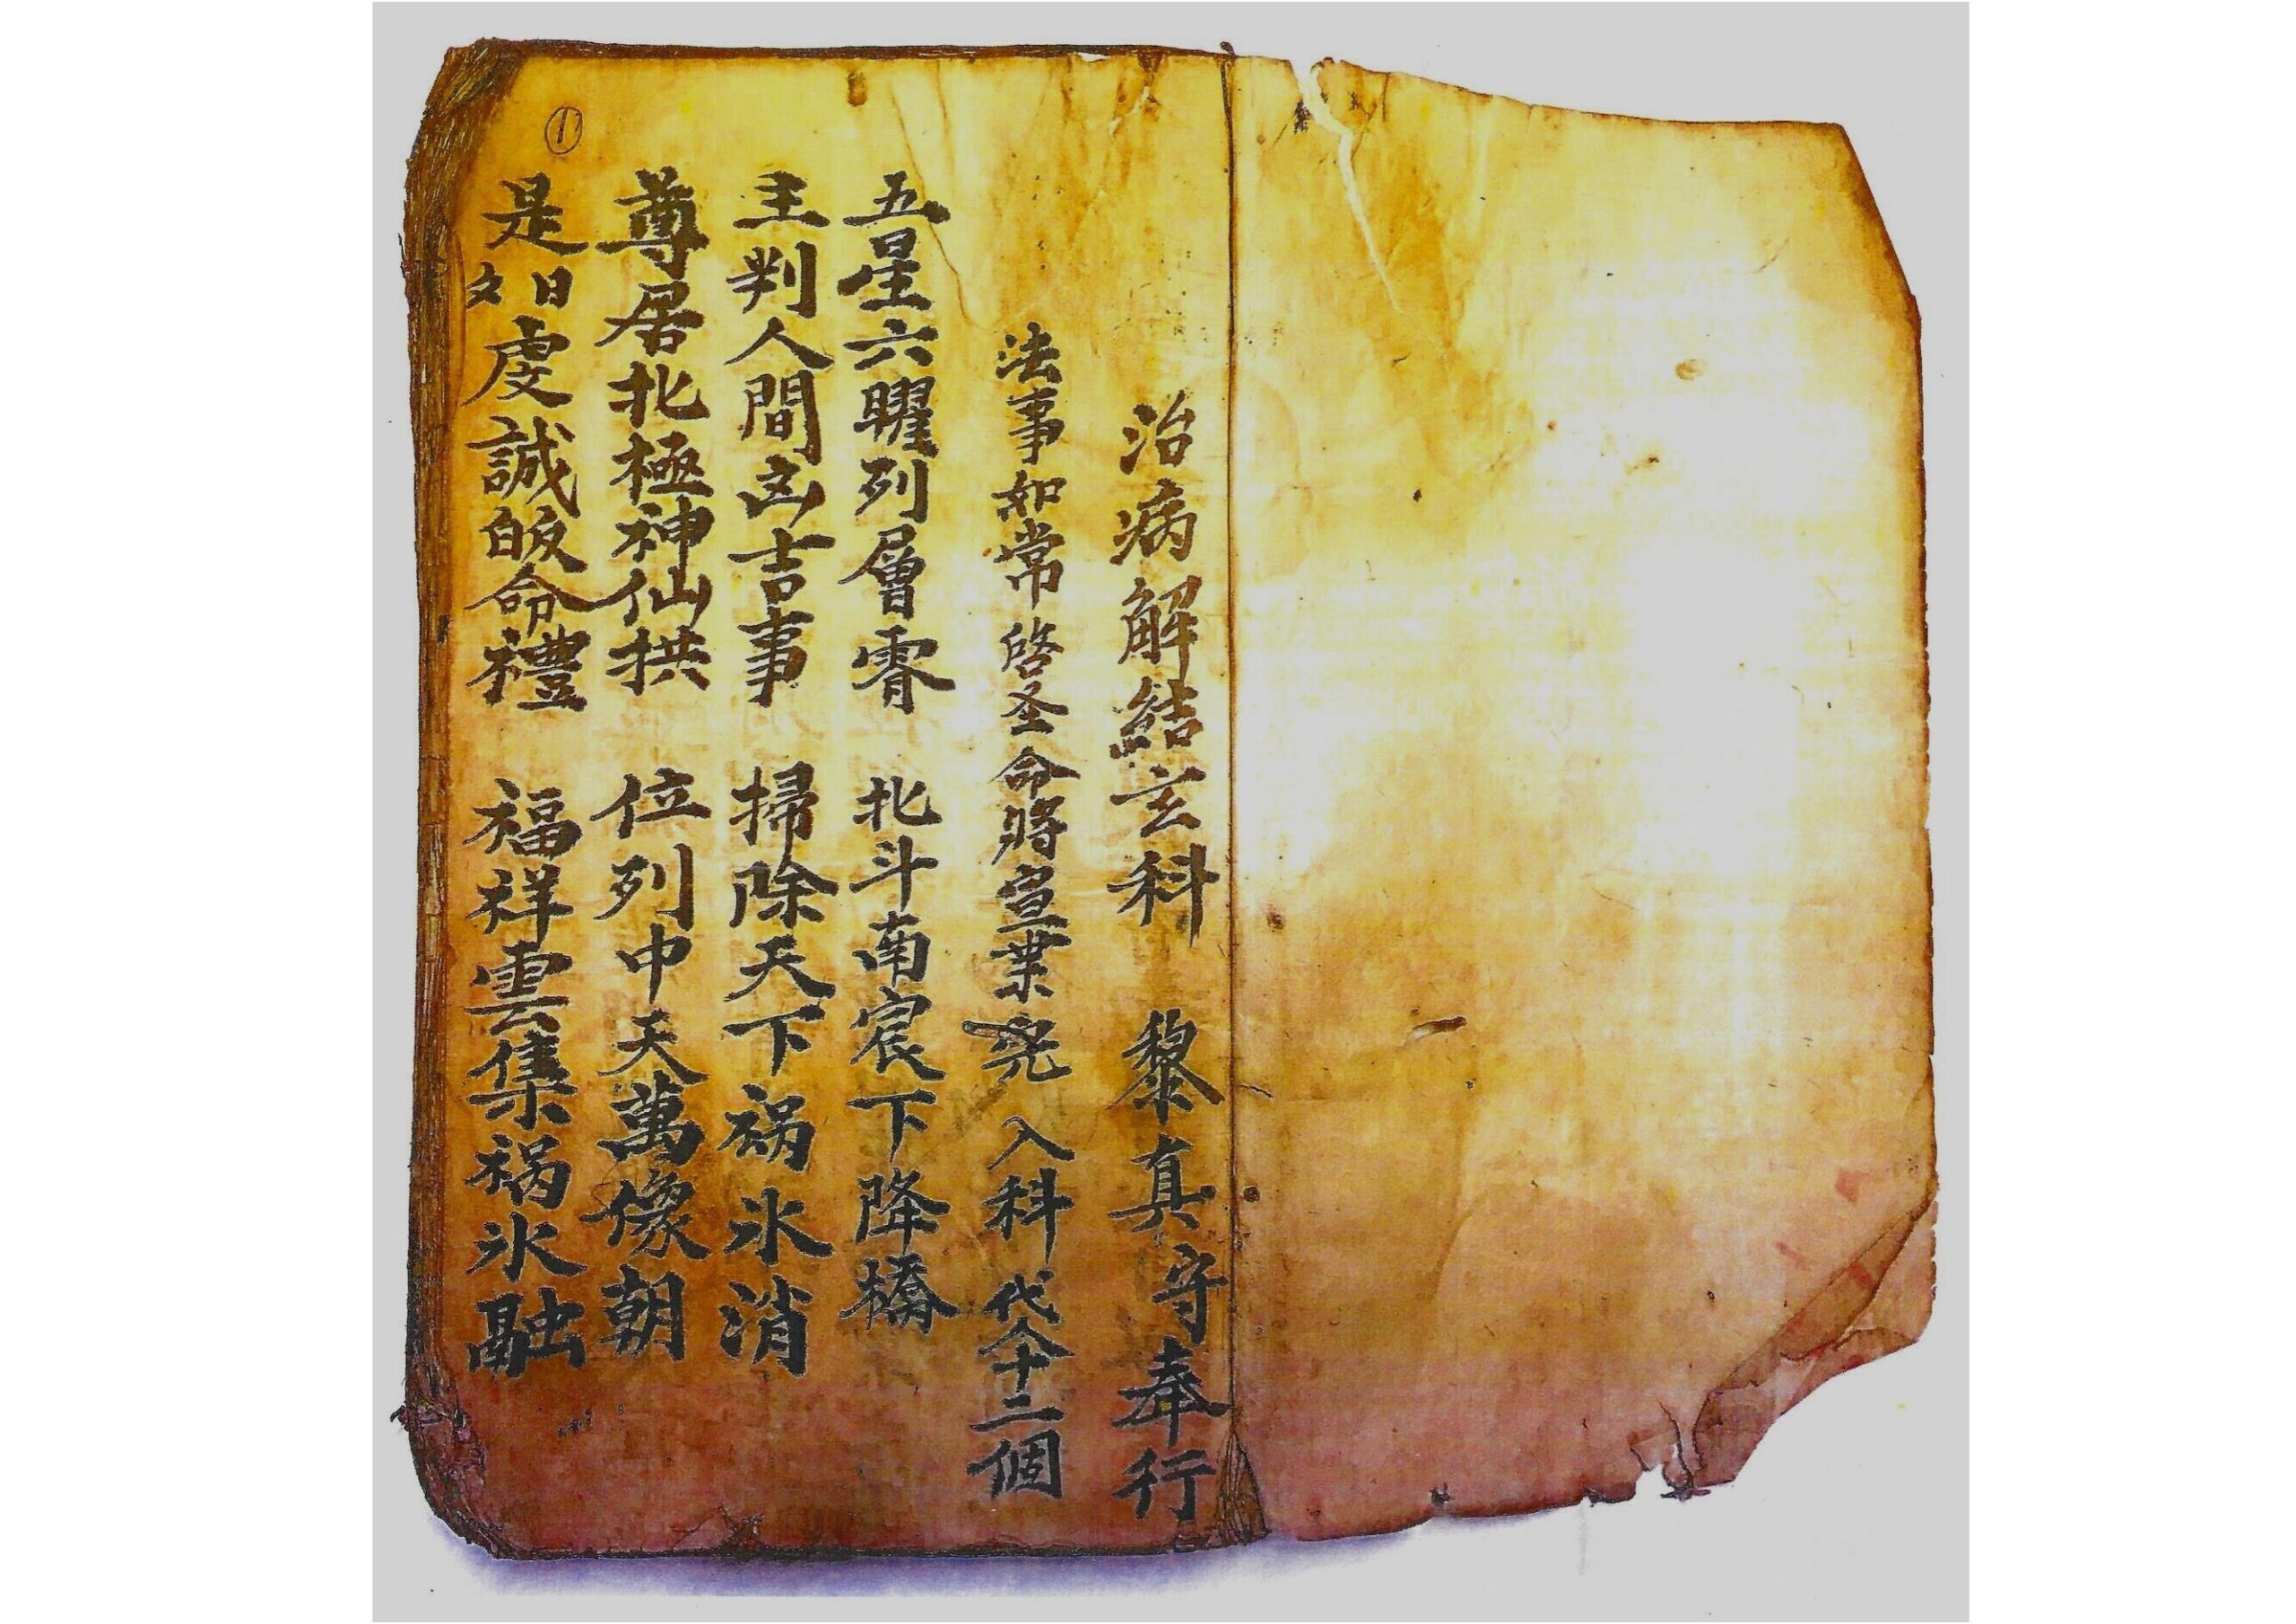 治病解結玄科 黎真守奉行
法事如常啓圣命將宣業完 入科代仐十二個
五星六曜列層霄 北斗南宸下降橋
主判人間凶吉事 掃除天下祸氷消
尊居北極神仙拱 位列中天萬像朝
是以日虔誠皈命禮 福祥雲集祸氷融
①